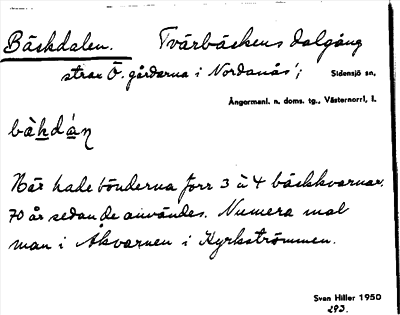 Bäckdalen. Tvärbäckens dalgång
strax Ö. gårdarna i Nordanås;
Sidensjö sn,
Ångermanl. n. doms. tg., Västernorrl. l.
bàkdáṇ
Här hade bönderna förr 3 à 4 bäckkvarnar.
70 år sedan de användes. Numera mal
man i Åkvarnen i Kyrkströmmen.
Sven Hiller 1950
293.